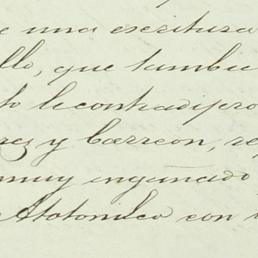 e una escritura
llo, que tambie
to le contradijero
res y Carreon, re
muy engañado
e Atotonilco con